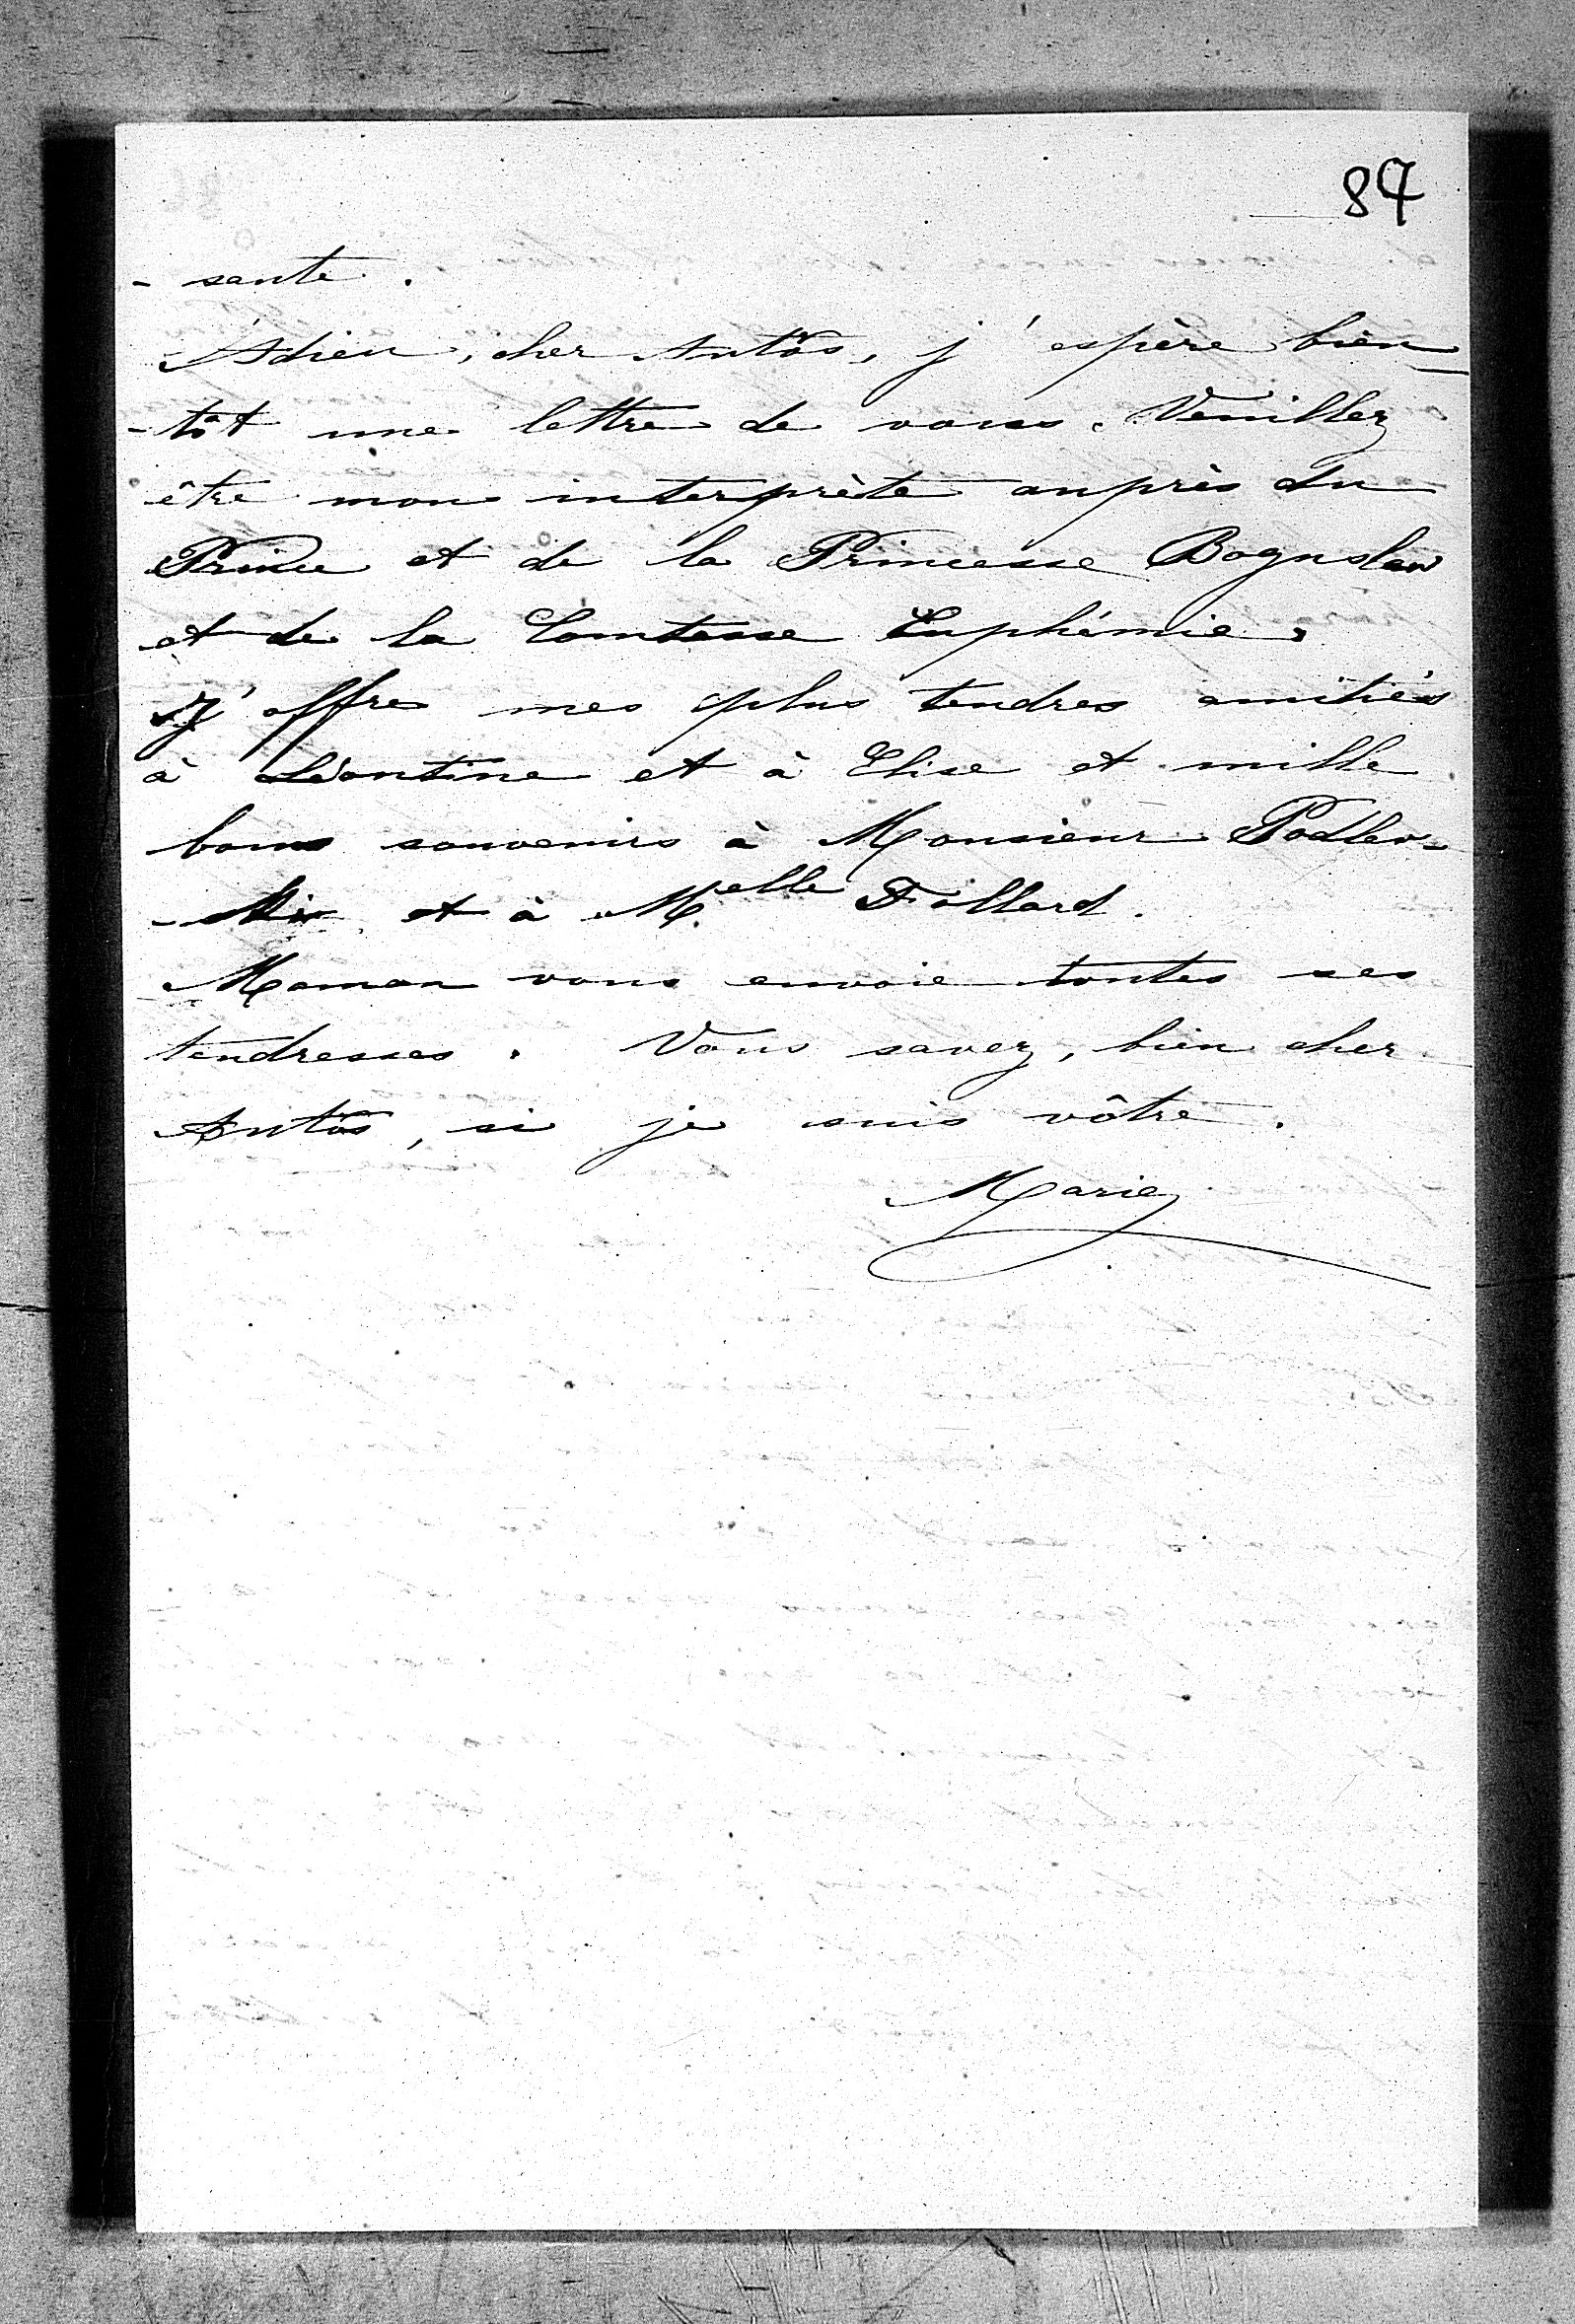 87
- sante.
Adieu, cher Antôs, j'espère bien-
-tôt une lettre de vous. Veuillez
être mon interprète auprès du
Prince et de la Princesse Boguslaw
et de la Comtesse Euphémie.
J'offre mes plus tendres amitiés
à Léontine et à Elise et mille
bons souvenirs à Monsieur Podlew-
-ski et à M.elle Follard.
Maman vous envoie toutes ses
tendresses. Vous savez, bien cher
Antôs, si je suis vôtre.
Marie